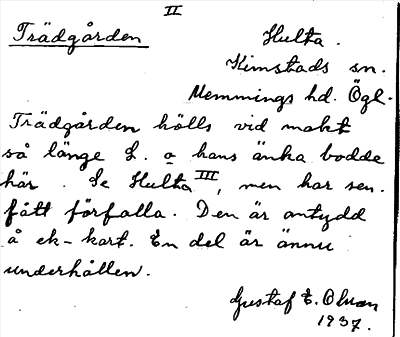 II
Trädgården
Hulta.
Kimstads sn.
Memmings hd. Ögl.
Trädgården hölls vid makt
så länge L. o hans änka bodde
här. Se Hulta III, men har sen.
fått förfalla. Den är antydd
å ek-kart. En del är ännu
underhållen.
Gustaf E. Olson
1937.